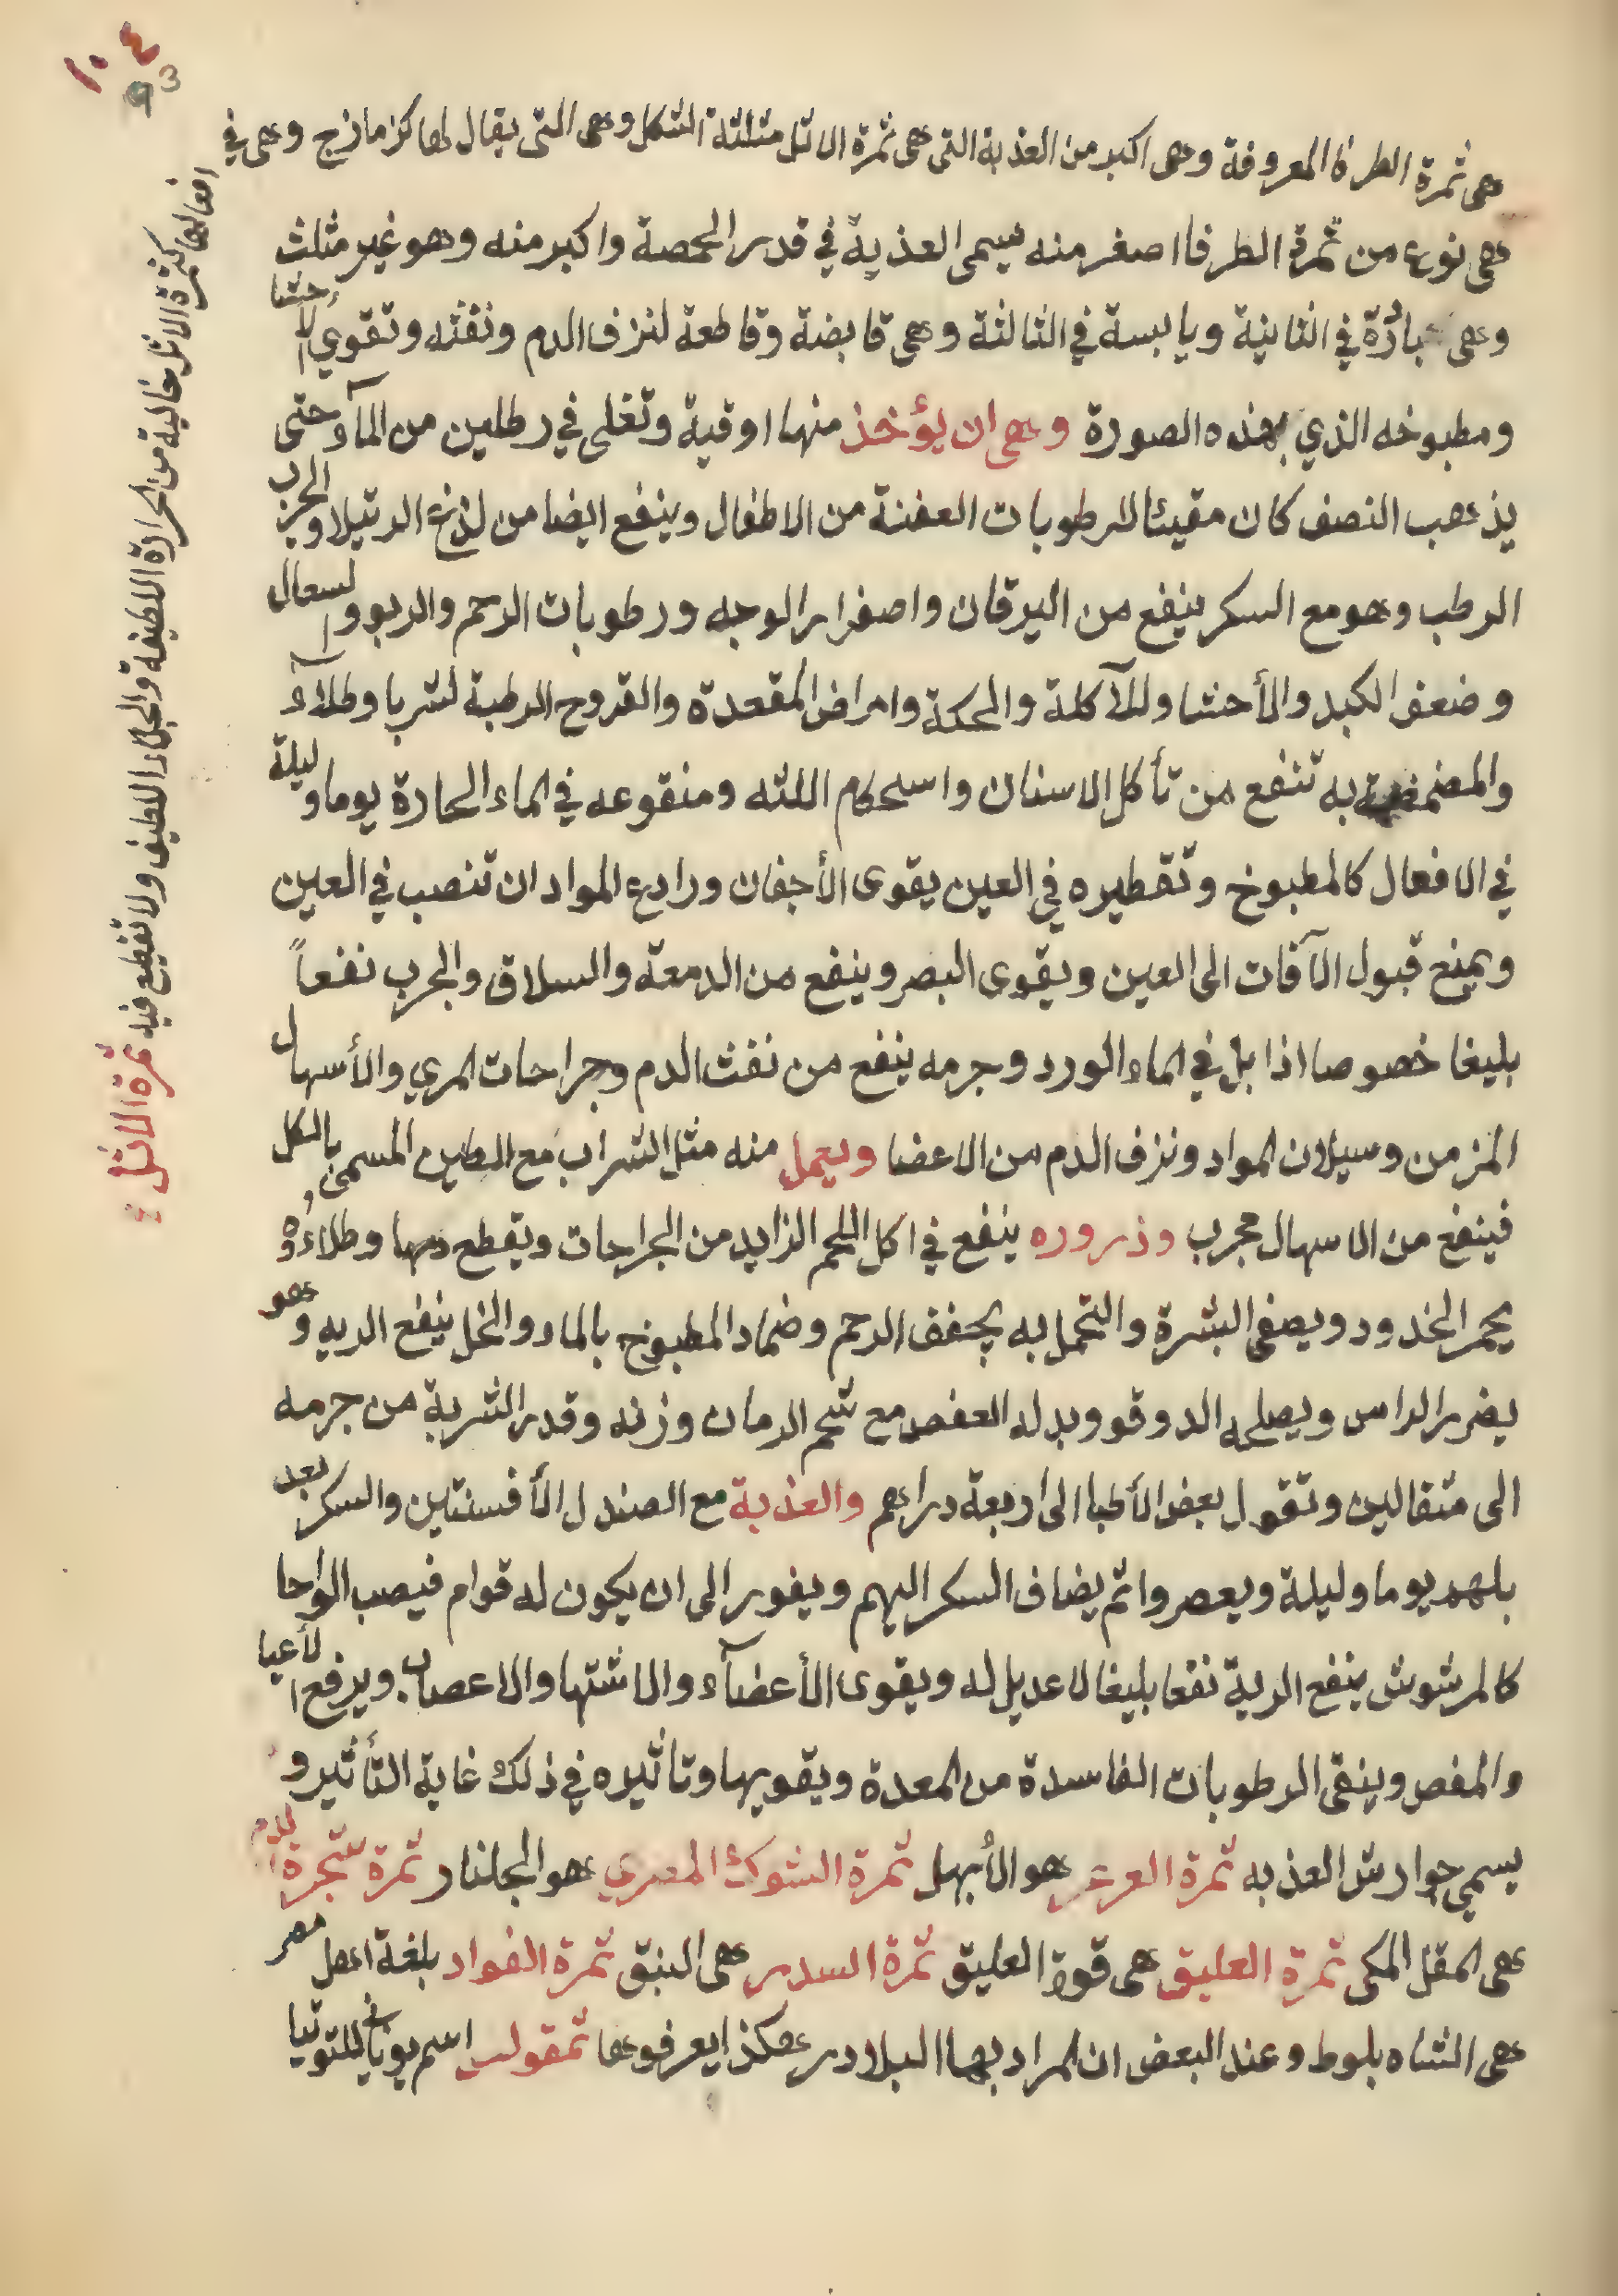 ١٠٤
93
هى ثمرة الطرفا المعروفة وهى اكبر من العذبة التى هى ثمرة الاثل مثلثة الشكل وهى التى يقال لها كزمازج وهى في
افعالها كثمرة الاثل خالية من الحرارة اللطيفة والجلاء اللطيف ولا تقطيع فيه ثمرة الاثل
هى نوع من ثمرة الطرفا اصغر منه يسمى العذبة في قدر الحمصة واكبر منه وهو غير مثلث
وهى باردة في الثانية ويابسة في الثالثة وهى قابضة وقاطعة لنزف الدم ونفثه وتقوي الاحشا
ومطبوخه الذي بهذه الصورة وهى ان يؤخذ منها اوقية وتغلى في رطلين من المآء حتى
يذهب النصف كان مقيئا للرطوبات العفنة من الاطفال وينفع ايضا من لذع الرتيلا والجرب
الرطب وهو مع السكر ينفع من اليرقان واصفرار الوجه ورطوبات الرحم والربو والسعال
وضعف الكبد والأحشا وللآكلة والحكة وامراض المقعدة والقروح الرطبة لشربا وطلآء
والمضمضة به تنفع من تأكل الاسنان واسحكام اللثه ومنقوعه في الماء الحارة يوما وليلة
في الافعال كالمطبوخ وتقطيره في العين يقوى الأجفان ورادع المواد ان تنصب في العين
ويمنع قبول الآفات الى العين ويقوى البصر وينفع من الدمعة والسلاق والجرب نفعاً
بليغا خصوصا اذا بل في الماء الورد وجرمه ينفع من نفث الدم وجراحات المري والأسهال
المزمن وسيلان المواد ونزف الدم من الاعضا ويعمل منه مثل الشراب مع الطين المسمى بالكل
فينفع من الاسهال مجرب وذروره ينفع في اكل اللحم الزايد من الجراحات ويقطع دمها وطلاءؤه
يحمر الخدود ويصفى البشرة والتحمل به يجفف الرحم وضماد المطبوخ بالماء والخل ينفع الريه وهو
يضر الراس ويصلحه الدوقو وبدله العفص مع شحم الرمان وزنه وقدر الشربة من جرمه
الى مثقالين وتقول بعض الأطبا الى اربعة دراهم والعذبة مع الصندل الأفسنتين والسكر بعد
بلهم يوما وليلة ويعصروا ثم يضاف السكر اليهم ويفور الى ان يكون له قوام فيصب الواحا
كالمرشوش ينفع الرية نفعا بليغا لا عديل له ويقوى الأعضآء والاشتها والاعصاب ويرفع الأعيا
والمغص وينقى الرطوبات الفاسدة من المعدة ويقويها وتاثيره في ذلك غاية التأثير و
يسمى جوارش العذبه ثمرة العرعر هو الأبهل ثمرة الشوك المصري هو الجلنار ثمرة شجرة الدوم
هى المقل المكى ثمرة العليق هى قوة العليق ثمرة السدر هى النبق ثمرة الفواد بلغة اهل مصر
هى الشاه بلوط وعند البعض ان المراد بها البلادر هكذا يعرفوها ثمقولس اسم يوناني للتوتيا